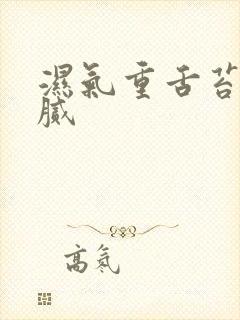 濕氣重舌苔
膩
高氡